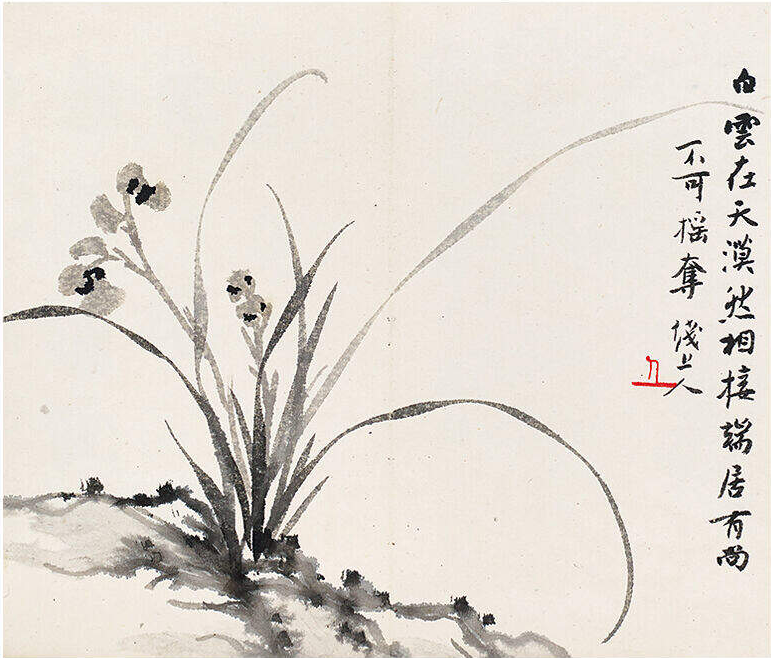 白雲在天漠然相接端居有尚
不可摇奪 上人